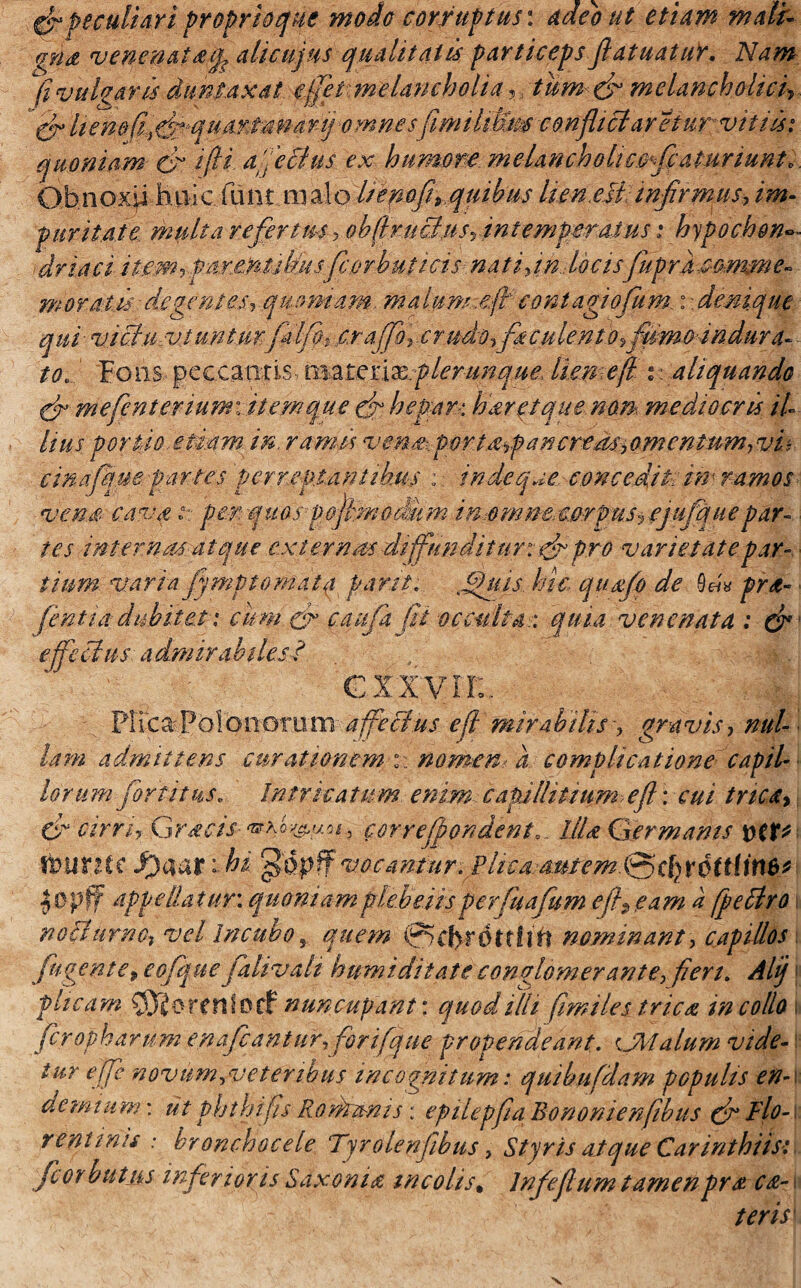 & peculiari proprioque modo corruptus: adeo ut etiam mali-
gnæ venenatæq; alicujus qualitatis particeps statuatur. Nam
si vulgaris duntaxat esset melancholia, tum & melancholici,
& lienosi, & quartanarij omnes similibus conflictarētur vitiis:
quoniam & isti affectus ex humore melancholico scaturiunt.
Obnoxij huic sunt malo lienosi, quibus lien est infirmus, im-
puritate multa refertus, obstructus, intemperatus: hypochon-
driaci item, parentibus scorbuticis nati, in locis supra comme-
moratis degentes, quoniam malum est contagiosum: denique
qui victu vtuntur salso, crasso, crudo, fæculento, fumo indura-
to. Fons peccantis materiæ plerunque lien est: aliquando
& mesenterium: itemque & hepar: hæretque non mediocris il-
lius portio etiam in ramis venæ portæ, pancreas, omentum, vi-
cinasque partes perreptantibus: indeque concedit in ramos
venæ cavæ: per quos postmodum in omne corpus, ejusque par-
tes internas atque externas diffunditur: & pro varietate par-
tium varia symptomata parit. Quis hic quæso de θείῳ præ-
sentia dubitet: cum & causa sit occulta: quia venenata: &
effectus admirabiles?
CXXVII.
Plica Polonorum affectus est mirabilis, gravis, nul-
lam admittens curationem: nomen à complicatione capil-
lorum sortitus. Intricatum enim capillitium est: cui tricæ,
& cirri, Græcis πλόκαμοι, correspondent. Illæ Germanis ver=
wurrte Haar: hi Zöpff vocantur. Plica autem Schröttlins=
zopff appellatur: quoniam plebeiis persuasum est, eam à spectro
nocturno, vel Incubo, quem Schröttlin nominant, capillos
sugente, eosque salivali humiditate conglomerante, fieri. Alij
plicam Morenlock nuncupant: quod illi similes tricæ in collo
scropharum enascantur, forisque propendeant. Malum vide-
tur esse novum, veteribus incognitum: quibusdam populis en-
demium: ut phthisis Romanis: epilepsia Bononiensibus & Flo-
rentinis: bronchocele Tyrolensibus, Styris atque Carinthiis:
scorbutus inferioris Saxoniæ incolis. Infestum tamen præ cæ-
teris